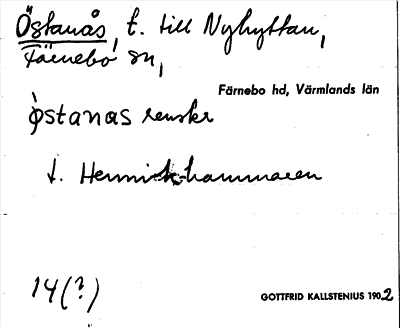 Östanås, t. till Nyhyttan,
Färnebo sn,
Färnebo hd, Värmlands län
østanas
t.
14(?)
GOTTFRID KALLSTENIUS 1902